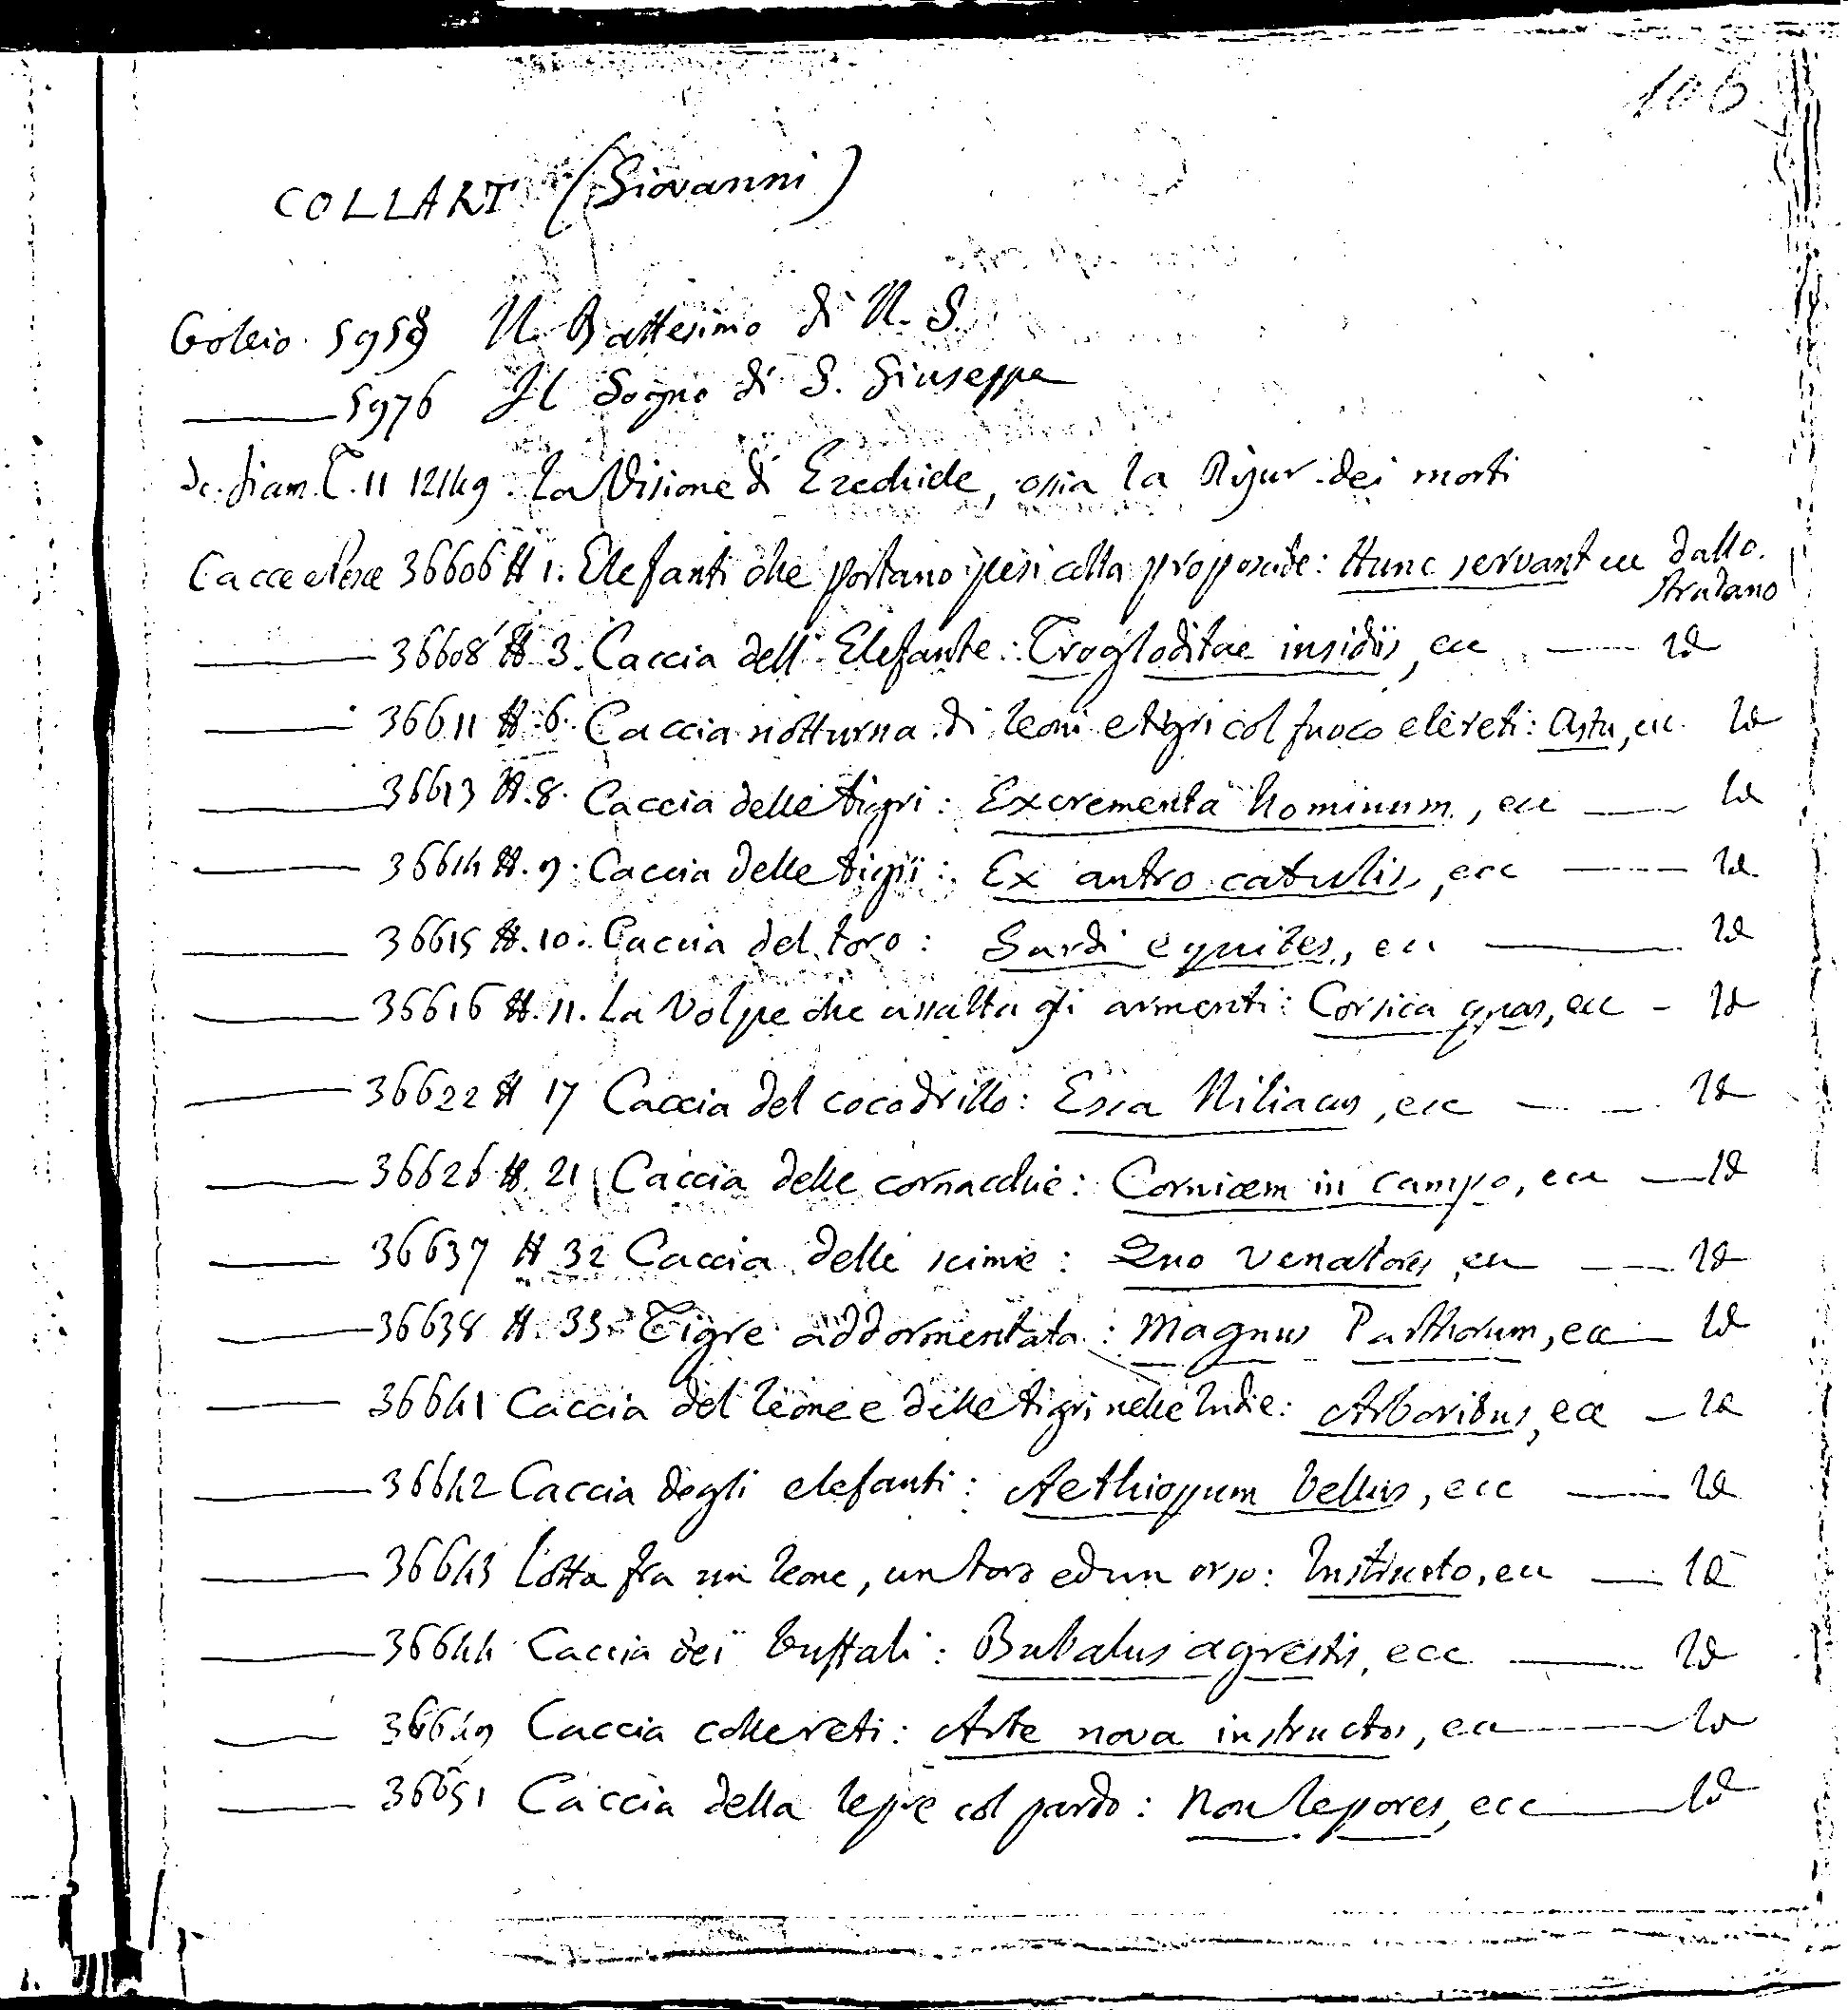 106
COLLART (Giovanni)
5959 Il Battesimo di N. S.
5976 Il Sogno di S. Giuseppe
T. 11 12149. La Visione di Ezechiele, ossia la Risur. dei morti
Cacce 36606 N 1. Elefanti che portano pesi alla proboscide: Hunc servant ecc dallo
Stradano
36608 N. 3. Caccia dell' Elefante: Trogloditae insidiis, ecc — Id
36611 N. 6. Caccia notturna di leoni e tigri col fuoco e le reti: Astu, ecc Id
36613 N. 8. Caccia delle tigri: Excrementa hominum, ecc — Id
36614 N. 9. Caccia delle tigri: Ex antro catulis, ecc — Id
36615 N. 10. Caccia del toro: Sardi equites, ecc — Id
36616 N. 11. La Volpe che assalta gli armenti: Corsica quas, ecc - Id
36622 N 17 Caccia del cocodrillo: Esca Niliacus, ecc — Id
36626 N. 21 Caccia delle cornacchie: Cornicem in campo, ecc — Id
36637 N 32 Caccia delle scimie: Quo venatores, ecc — Id
36638 N. 33. Tigre addormentata: Magnus Parthorum, ecc — Id
36641 Caccia del leone e delle tigri nelle Indie: Arboribus, ecc — Id
36642 Caccia degli elefanti: Aethiopum bellus, ecc — Id
36643 Lotta fra un leone, un toro ed un orso: Instructo, ecc — Id
36644 Caccia dei buffali: Bubalus agrestis, ecc — Id
36649 Caccia colle reti: Arte nova instructos, ecc — Id
36651 Caccia della lepre col pardo: Non lepores, ecc — Id